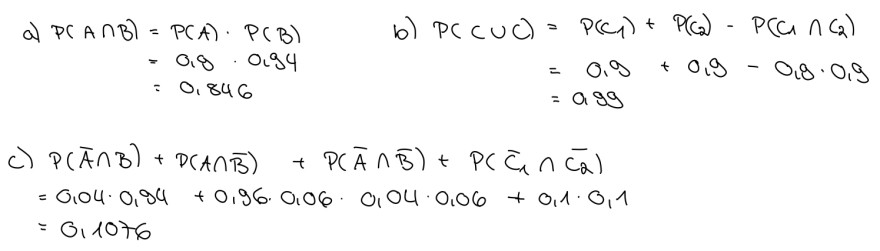 a) P(A∩B) = P(A) · P(B)
= 0,9 · 0,94
= 0,846
b) P(C∪C) = P(C₁) + P(C₂) - P(C₁ ∩ C₂)
= 0,9 + 0,9 - 0,9·0,9
= 0,99
c) P(A̅∩B) + P(A∩B̅) + P(A̅∩B̅) + P(C̅₁ ∩ C̅₂)
= 0,04·0,94 + 0,96·0,06· 0,04·0,06 + 0,1·0,1
= 0,1076